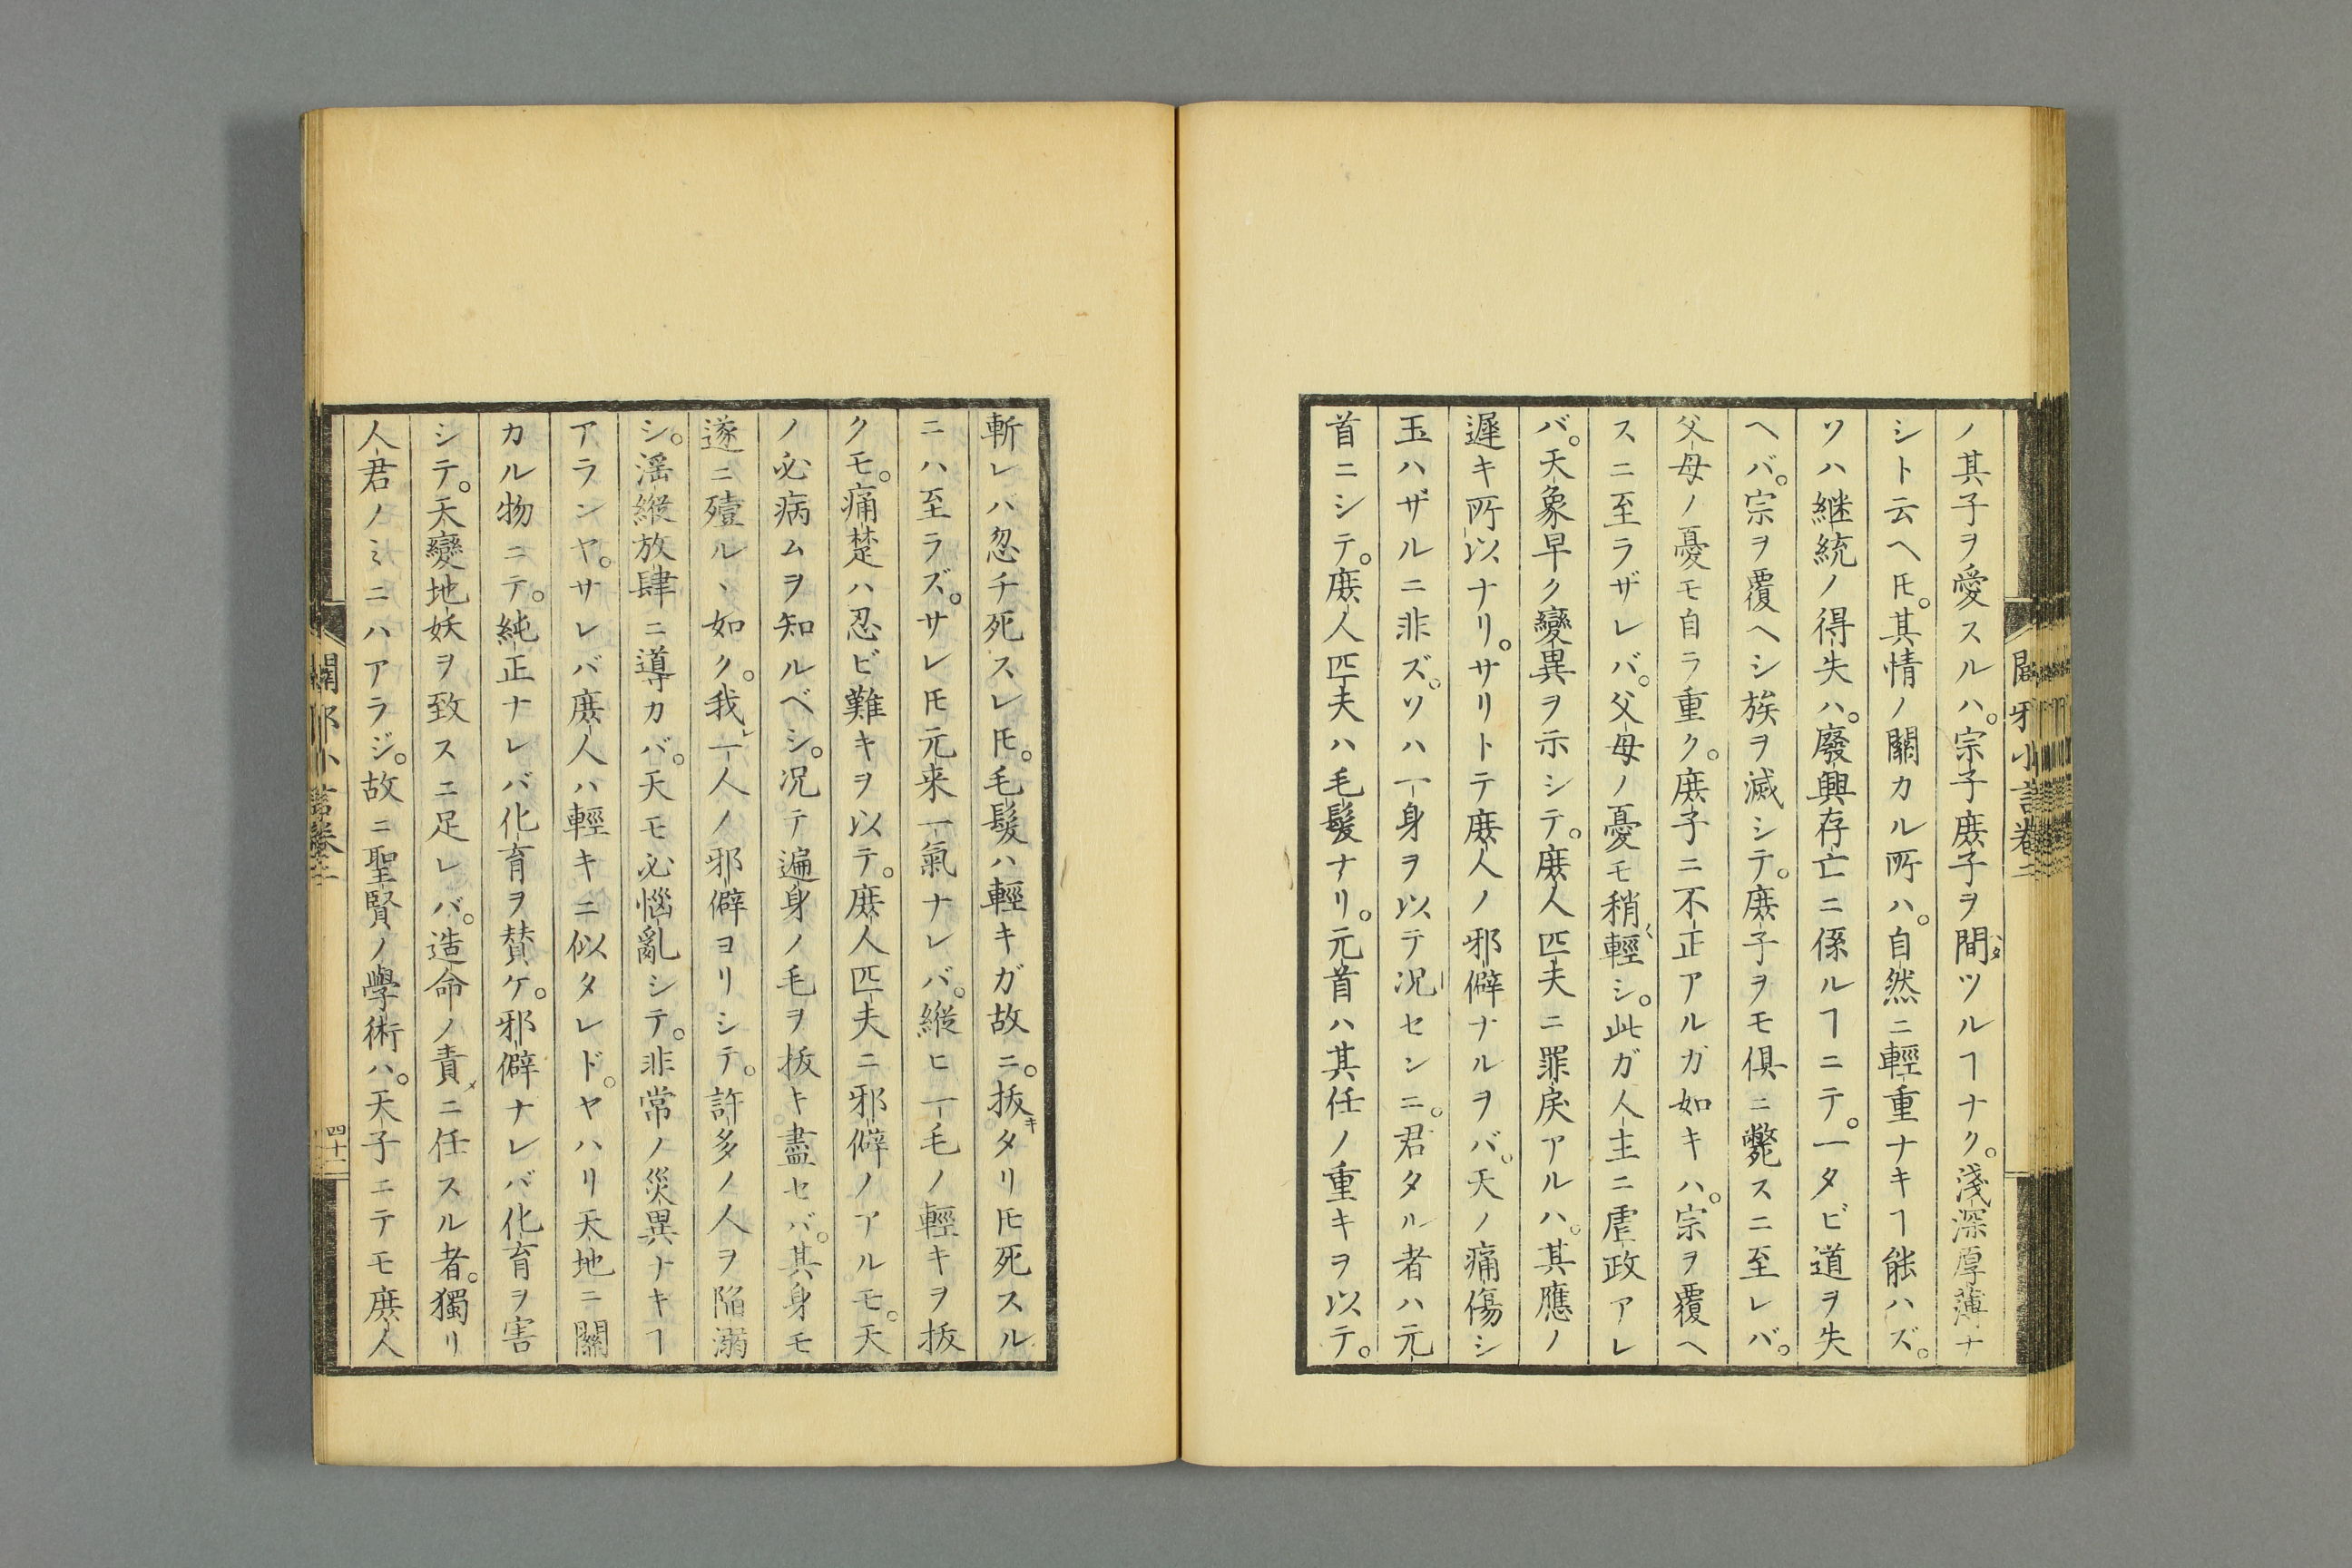 ノ其子ヲ愛スルハ。宗子庶子ヲ間ツルヿナク。淺深厚薄ナ
シト云ヘ𪜈。其情ノ關カル所ハ。自然ニ輕重ナキヿ能ハズ。
ソハ継統ノ得失ハ。廢興存亡ニ係ルヿニテ。一タビ道ヲ失
ヘバ。宗ヲ覆ヘシ族ヲ滅シテ。庶子ヲモ俱ニ斃スニ至レバ。
父母ノ憂モ自ラ重ク。庶子ニ不正アルガ如キハ。宗ヲ覆ヘ
スニ至ラザレバ。父母ノ憂モ稍輕シ。此ガ人主ニ虐政アレ
バ。天象早ク變異ヲ示シテ。庶人匹夫ニ罪戾アルハ。其應ノ
遲キ所以ナリ。サリトテ庶人ノ邪僻ナルヲバ。天ノ痛傷シ
玉ハザルニ非ズ。ソハ一身ヲ以テ况センニ。君タル者ハ元
首ニシテ。庶人匹夫ハ毛髮ナリ。元首ハ其任ノ重キヲ以テ。
闢邪小言卷二
斬レバ忽チ死スレ𪜈。毛髮ハ輕キガ故ニ。抜タリ𪜈死スル
ニハ至ラズ。サレ𪜈元来一氣ナレバ。縱ヒ一毛ノ輕キヲ抜
クモ。痛楚ハ忍ビ難キヲ以テ。庶人匹夫ニ邪僻ノアルモ。天
ノ必病ムヲ知ルベシ。况テ遍身ノ毛ヲ抜キ盡セバ。其身モ
遂ニ殪ルヽ如ク。我一人ノ邪僻ヨリシテ。許多ノ人ヲ陷溺
シ。滛縱放肆ニ導カバ。天モ必惱亂シテ。非常ノ災異ナキヿ
アランヤ。サレバ庶人ハ輕キニ似タレド。ヤハリ天地ニ關
カル物ニテ。純正ナレバ化育ヲ賛ケ。邪僻ナレバ化育ヲ害
シテ。天變地妖ヲ致スニ足レバ。造命ノ責ニ任スル者。獨リ
人君ノミニハアラジ。故ニ聖賢ノ學術ハ。天子ニテモ庶人
闢邪小言卷二
四十一